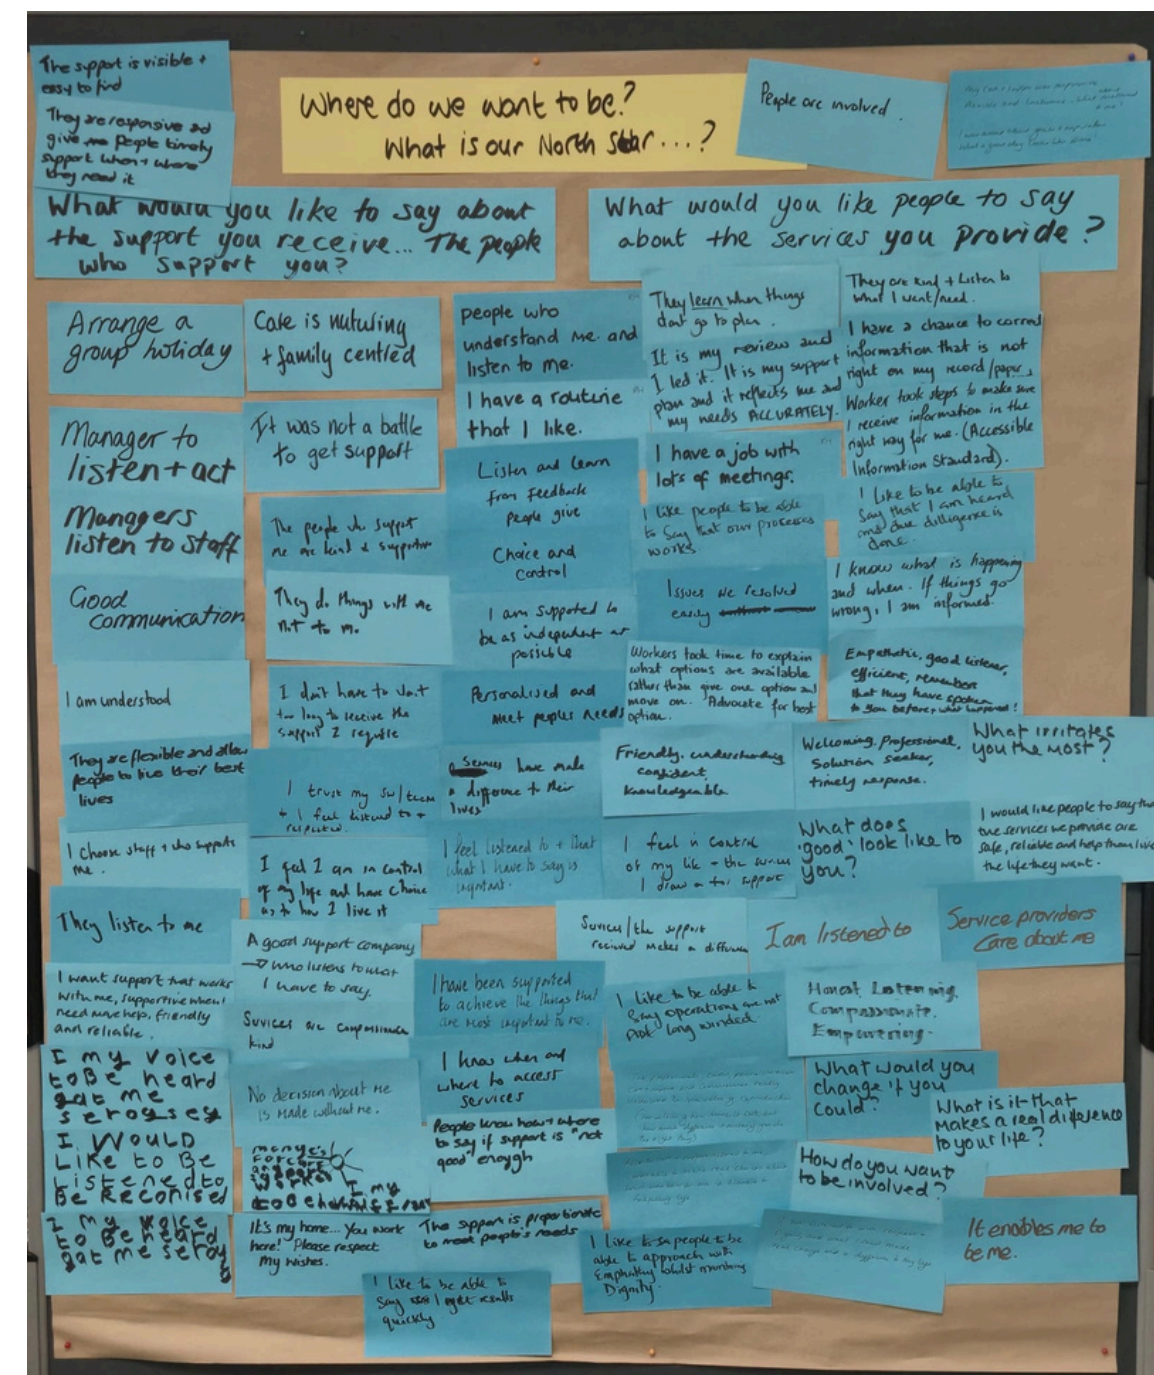 The support is visible +
easy to find
They are responsive and
give me people timely
support when + where
they need it
Where do we want to be?
What is our North Star...?
People are involved.
What would you like to say about
the support you receive... The people
who support you?
What would you like people to say
about the services you provide?
Arrange a
group holiday
Manager to
listen + act
Managers
listen to staff
Good
communication
I am understood
They are flexible and allow
people to live their best
lives
I choose staff + who supports
me.
They listen to me
I want support that works
with me, supportive when I
need more help, friendly
and reliable.
I my voice
toBe heard
gat me
serogsey
I WOULD
Like to Be
Listened to
Be Reconised
I my voice
to Be heard
gat me
Care is nuturing
+ family centred
It was not a battle
to get support
The people who support
me are kind & supportive
They do things with me
not to me.
I don't have to wait
too long to receive the
support I require
I trust my SW/team
+ I feel listened to +
respected.
I feel I am in control
of my life and have choice
as to how I live it
A good support company
→ who listens to what
I have to say.
Services are compassionate
kind
No decision about me
is made without me.
It's my home... You work
here! Please respect
my wishes.
I like to be able to
Say I get results
quickly
people who
understand me. and
listen to me.
I have a routine
that I like.
Listen and learn
from feedback
people give
Choice and
control
I am supported to
be as independent as
possible
Personalised and
meet peoples needs
Services have made
a difference to their
lives
I feel listened to + that
what I have to say is
important.
I have been supported
to achieve the things that
are most important to me.
I know when and
where to access
services
People know how + where
to say if support is "not
good" enough
The support is proportionate
to meet people's needs
They learn when things
dont go to plan.
It is my review and
I led it. It is my support
plan and it reflects me and
my needs ACCURATELY.
I have a job with
lots of meetings.
I like people to be able
to say that our processes
works
Issues are resolved
easily
Workers took time to explain
what options are available
rather than give one option and
move on. Advocate for best
option.
Friendly, understanding
confident,
knowledgeable
I feel in control
of my life + the services
I draw on for support
Services/the support
recieved makes a difference
I like to be able to
Say operations are not
long winded.
I like to see people to be
able to approach with
Dignity.
They are kind + Listen to
what I want/need.
I have a chance to correct
information that is not
right on my record/paper
Worker took steps to make sure
I receive information in the
right way for me. (Accessible
Information Standard).
I like to be able to
Say that I am heard
and due dilligence is
done.
I know what is happening
and when. If things go
wrong, I am informed.
Empathetic, good listener,
efficient, remembers
that they have spoken
to you before + what happened!
Welcoming, Professional,
Solution seeker,
timely response.
What irritates
you the most?
What does
'good' look like to
you?
I would like people to say that
the services we provide are
safe, reliable and help them live
the life they want.
I am listened to
Service providers
Care about me
Honest Listening.
Compassionate.
Empowering.
What would you
change if you
could?
What is it that
makes a real difference
to your life?
How do you want
to be involved?
It enables me to
be me.